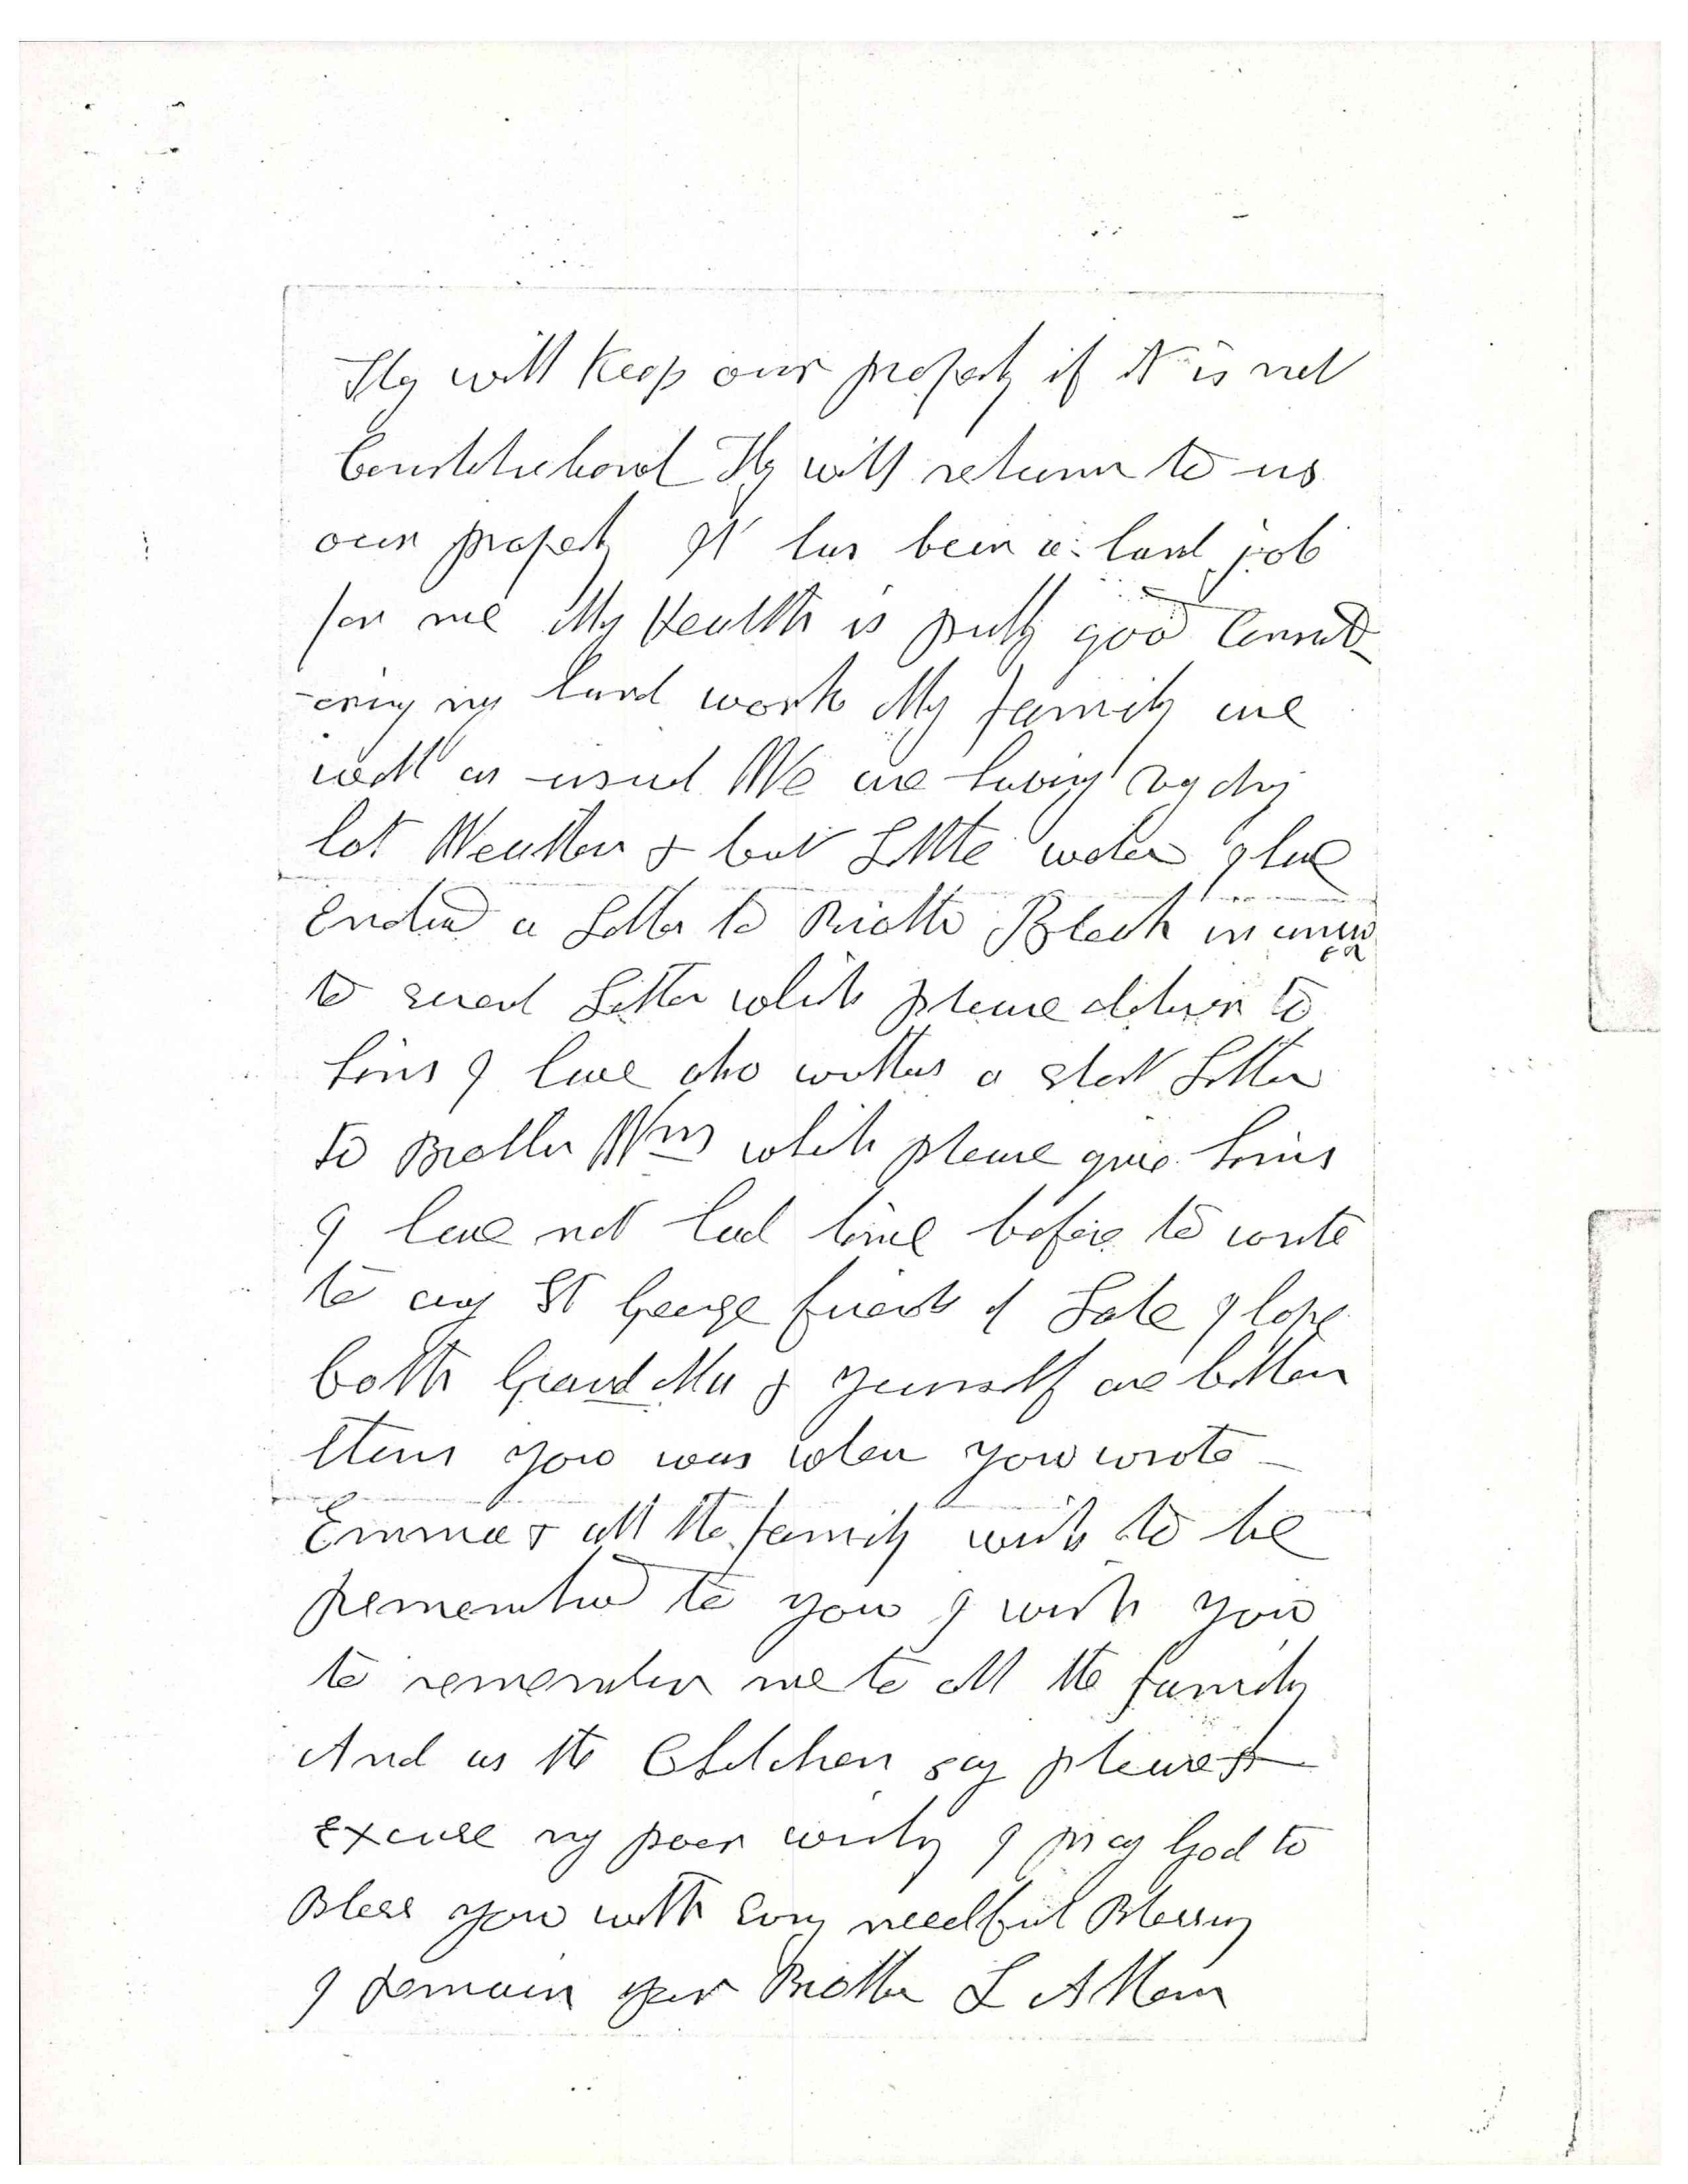 They will Keep our property if it is not
Constitutional They will return to us
our property It has been a hard job
for me My Health is pretty good Consid-
-ering my hard work My family are
well as usual We are having very dry
hot Weather & but Little water I have
Enclosed a Letter to Brother Bleak in answer
to recent Letter which please deliver to
him I have also written a short Letter
to Brother Wm which please give him
I have not had time before to write
to any St George friends of Late I hope
both Grand Ma & yourself are better
then you was when you wrote -
Emma & all the family wish to be
remembered to you I wish you
to remember me to all the family
And as the Children say please
Excuse my poor writing I pray God to
Bless you with Every needful Blessing
I remain your Brother L